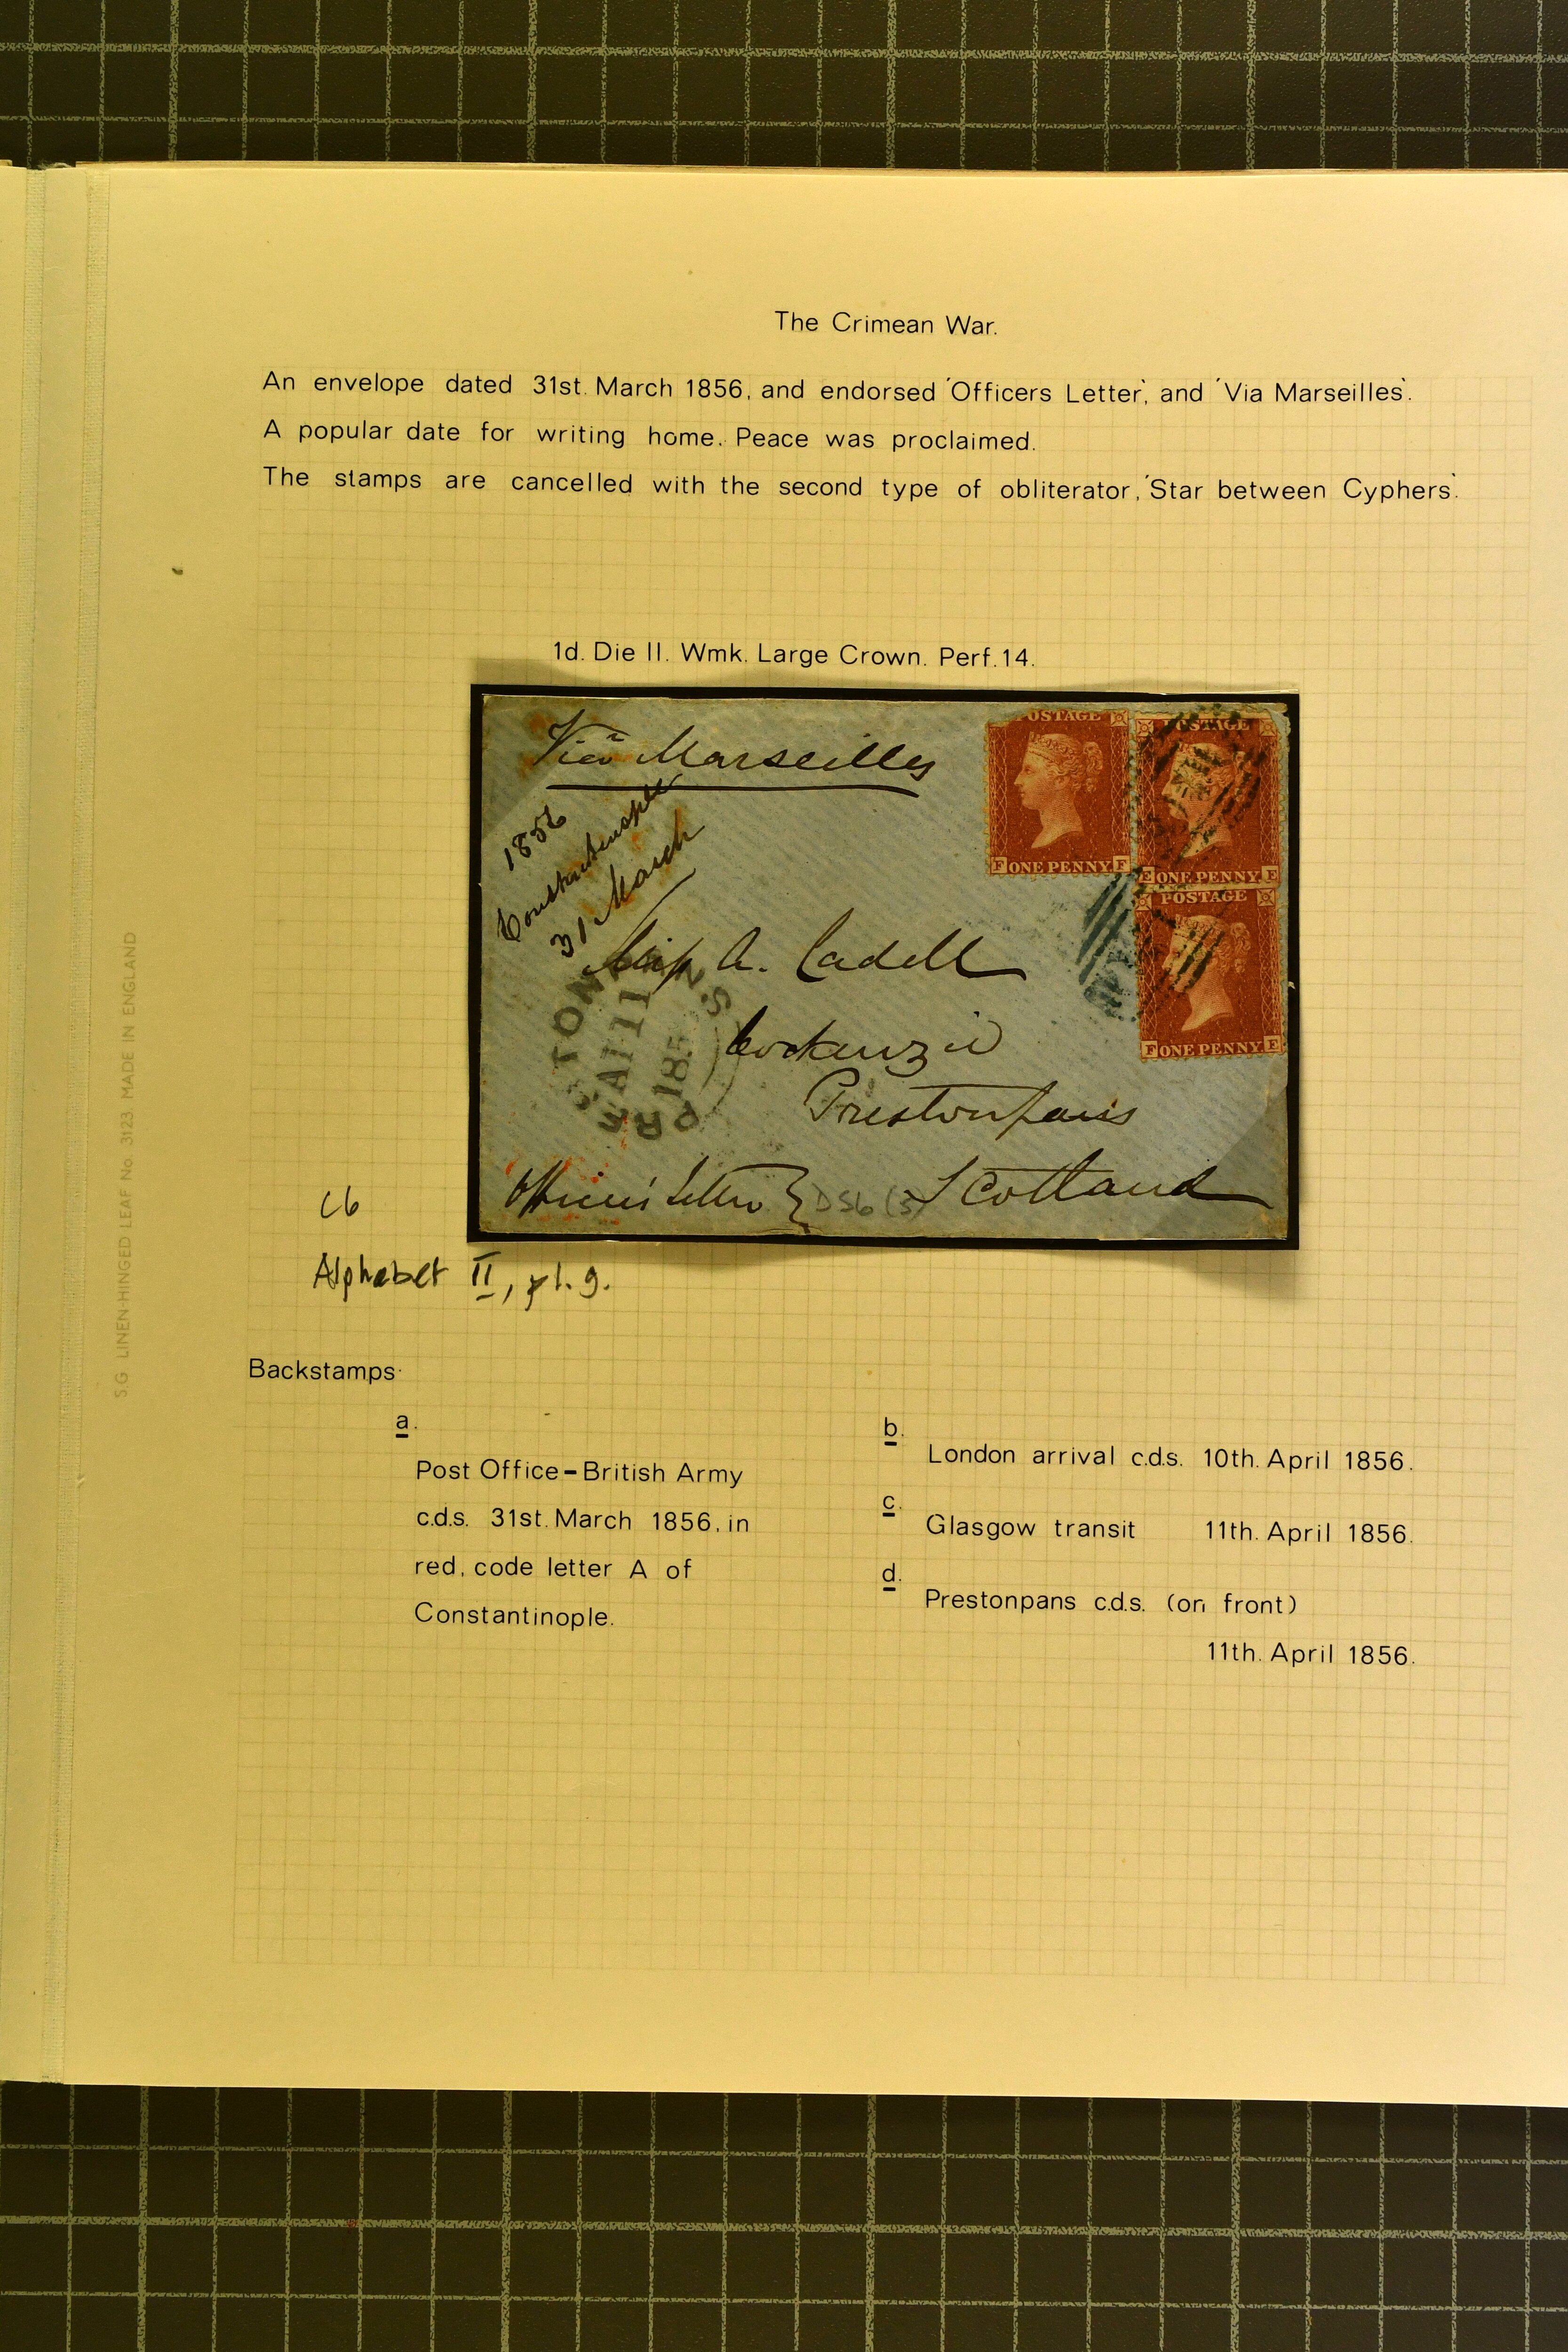 The Crimean War.
An envelope dated 31st. March 1856, and endorsed 'Officers Letter', and 'Via Marseilles'.
A popular date for writing home. Peace was proclaimed.
The stamps are cancelled with the second type of obliterator, 'Star between Cyphers'.
1d. Die II. Wmk. Large Crown. Perf. 14.
Via Marseilles
1856
Constantinople
31 March
POSTAGE
F ONE PENNY F
POSTAGE
E ONE PENNY E
POSTAGE
F ONE PENNY E
Miss A. Cadell
Cockenzie
Prestonpans
Scotland
Officers Letter
DS6 (3)
PRESTONPANS
AP 11
185
C6
Alphabet II, pl. 9.
Backstamps.
a.
Post Office-British Army
c.d.s. 31st. March 1856, in
red, code letter A of
Constantinople.
b.
London arrival c.d.s. 10th. April 1856.
c.
Glasgow transit 11th. April 1856.
d.
Prestonpans c.d.s. (on front)
11th. April 1856.
S.G LINEN HINGED LEAF No. 3123 MADE IN ENGLAND